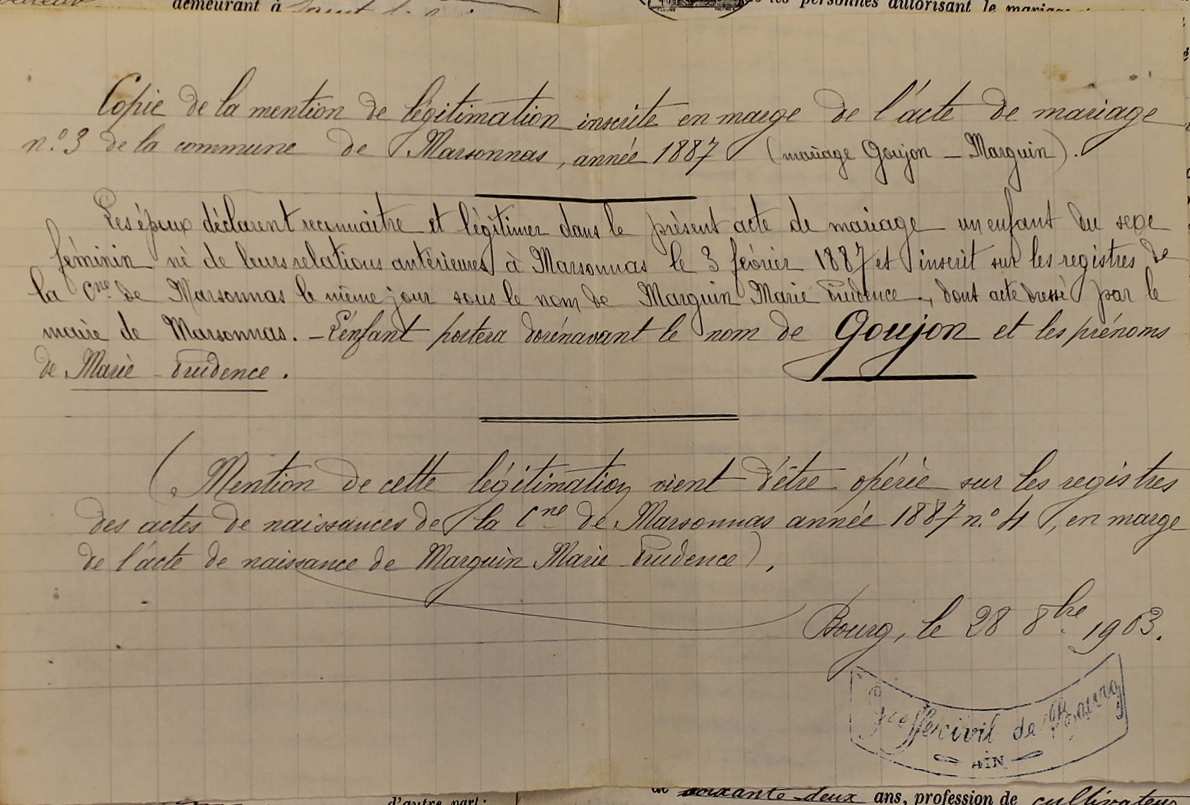 demeurant à
les personnes autorisant le mariage
Copie de la mention de légitimation inscrite en marge de l'acte de mariage
n.° 3 de la commune de Marsonnas, année 1887 (mariage Goujon – Marguin).
Les époux déclarent reconnaitre et légitimer dans le présent acte de mariage un enfant du sexe
féminin né de leurs relations antérieures à Marsonnas le 3 février 1887 et inscrit sur les registres de
la Cne de Marsonnas le même jour sous le nom de Marguin Marie Prudence, dont acte dressé par le
maire de Marsonnas. – L'enfant portera dorénavant le nom de Goujon et les prénoms
de Marie Prudence.
(Mention de cette légitimation vient d'être opérée sur les registres
des actes de naissances de la Cne de Marsonnas année 1887 n.° 4, en marge
de l'acte de naissance de Marguin Marie Prudence).
Bourg, le 28 8bre 1903.
Greffe civil de Bourg
AIN
d'autre part:
soixante-deux ans, profession de cultivateur